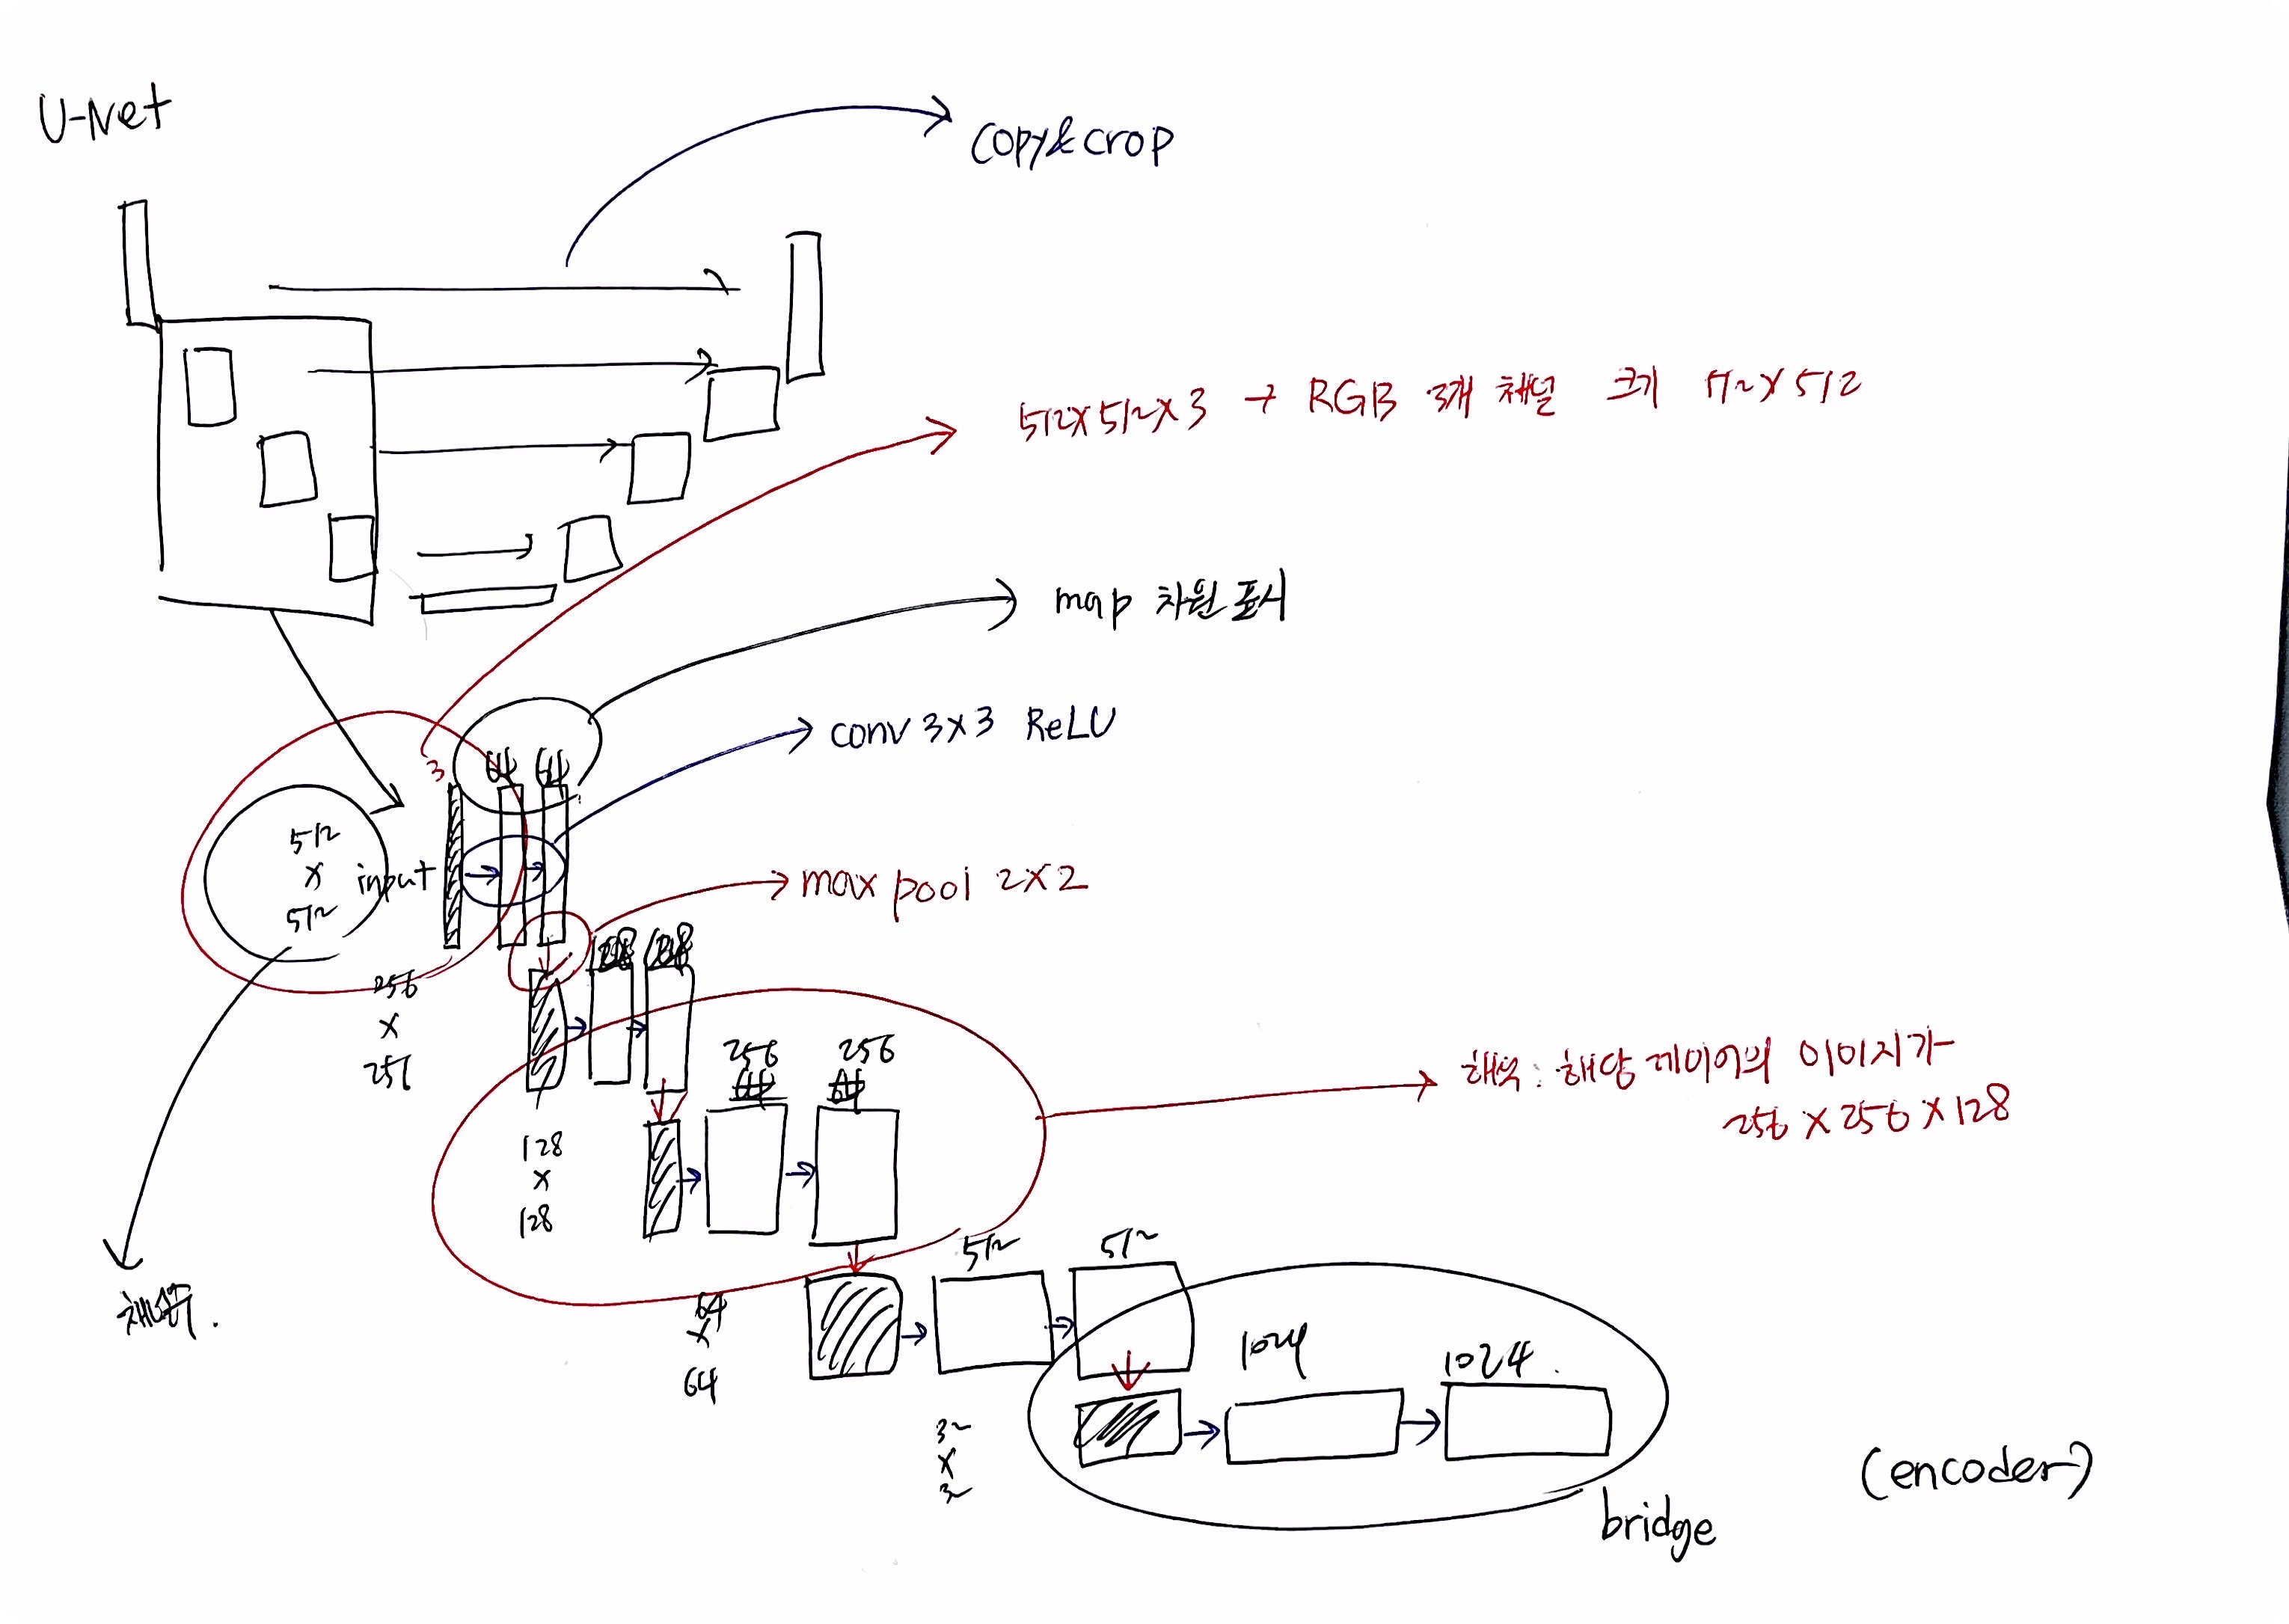 U-Net
copy&crop
512x512x3 → RGB 3개 채널 크기 512x512
map 차원 표시
conv 3x3 ReLU
3
64 64
512
x
512
input
max pool 2x2
128 128
256
x
256
256 256
해석: 해당 레이어의 이미지가
256 x 256 x 128
128
x
128
512 512
64
x
64
1024 1024
32
x
32
(encoder)
bridge